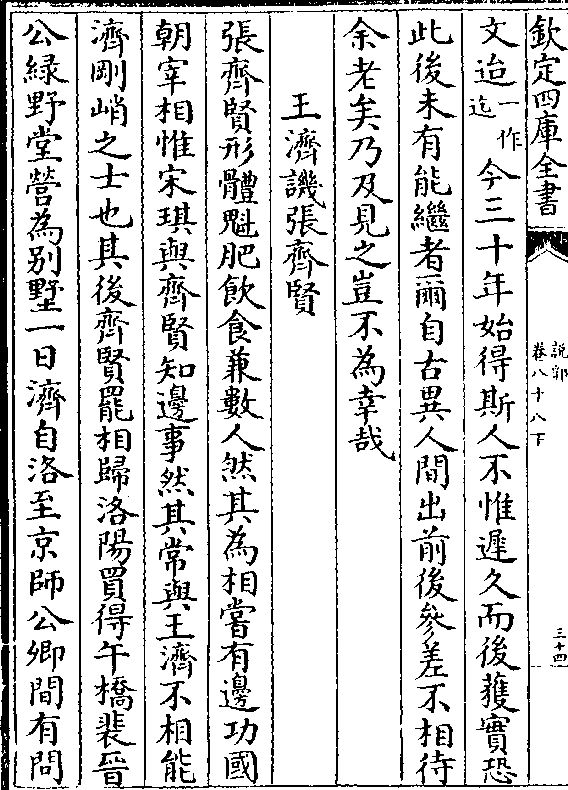 欽定四庫全書
說郛
卷八十八下
三十四
文迨一作迄今三十年始得斯人不惟遲久而後獲實恐
此後未有能繼者爾自古異人間出前後參差不相待
余老矣乃及見之豈不為幸哉
王濟譏張齊賢
張齊賢形體魁肥飲食兼數人然其為相嘗有邊功國
朝宰相惟宋琪與齊賢知邊事然其常與王濟不相能
濟剛峭之士也其後齊賢罷相歸洛陽買得午橋裴晉
公緑野堂營為别墅一日濟自洛至京師公卿間有問